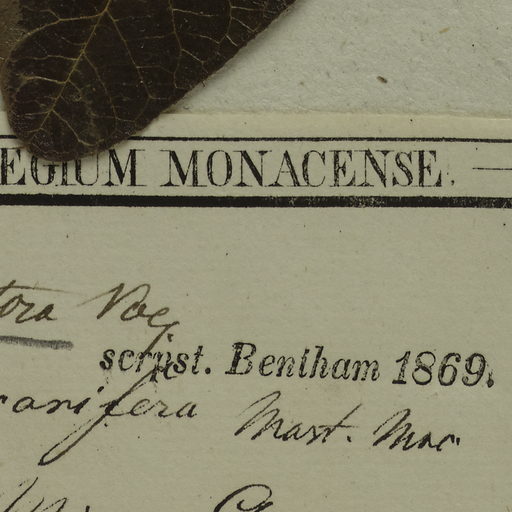 EGIUM MONACENSE.
tora Vog
scripst. Bentham 1869.
ranifera Mart. Mac.